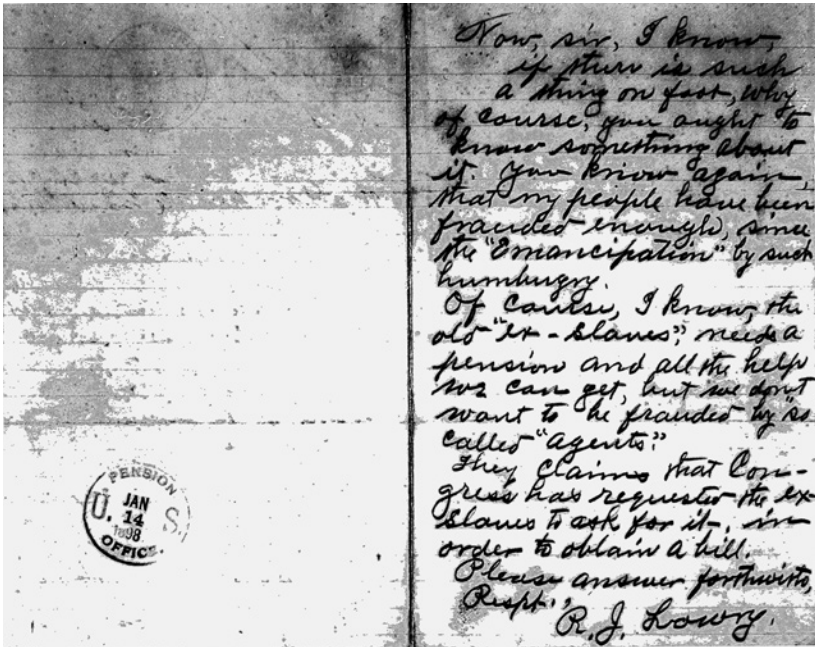 PENSION
U. S.
JAN
14
1898
OFFICE.
Now, sir, I know,
if there is such
a thing on foot, why
of course, you ought to
know something about
it. You know again,
that my people have been
frauded enough, since
the "Emancipation" by such
humbugry.
Of course, I know, the
old "ex-slaves", needs a
pension and all the help
we can get, but we don't
want to be frauded by "so
called "agents".
They claims that Con-
gress has requested the ex-
slaves to ask for it, in
order to obtain a bill.
Please answer forthwith,
Respt.,
R. J. Lowry.